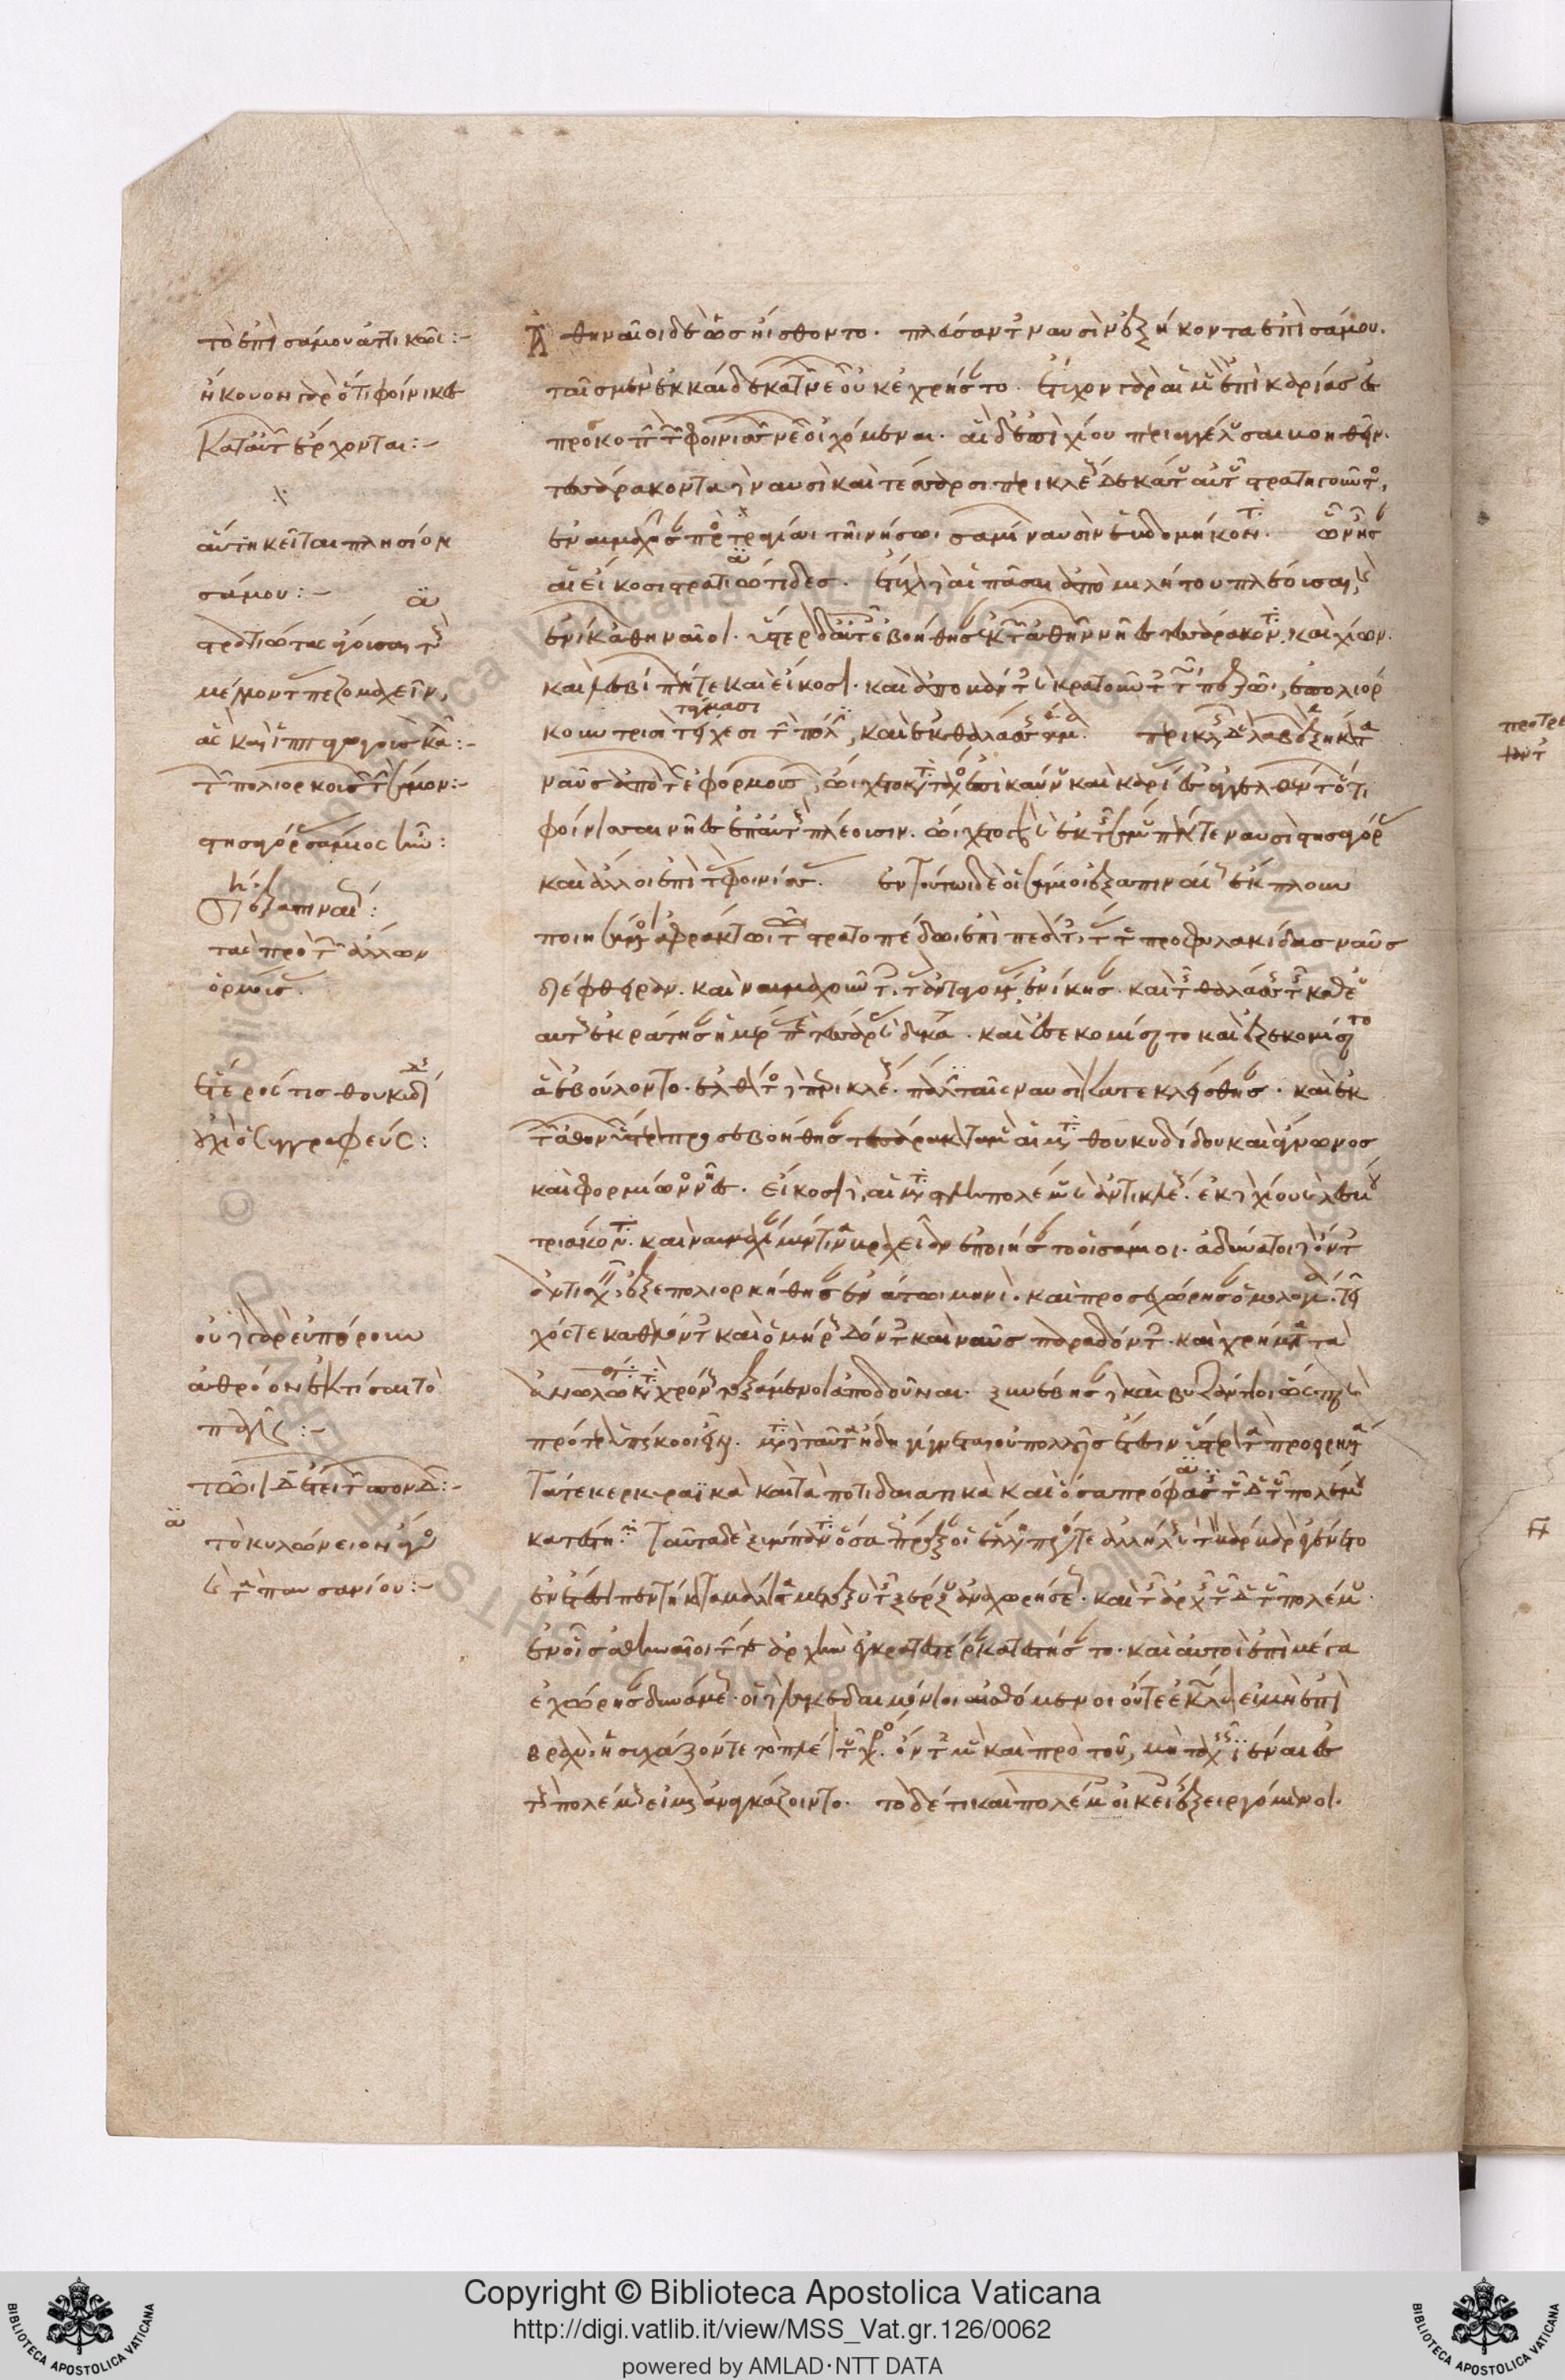 τὸ ἐπὶ σάμου ἀττικῶς:-
ἤκουον γὰρ ὅτι φοίνικες
κατ αὐτῶν ἔρχονται:-
αὕτη κεῖται πλησίον
σάμου:-
στρατιώτας ἄγουσαι τοὺς
μέλλοντας πεζομαχεῖν,
στησαγόρας σάμιος ἦν:
ἐξαπιναίως:
τὰς πρὸ τῶν ἄλλων
ὁρμούσας.
ἕτερός τις θουκυδίδης
οὐχὶ ὁ συγγραφεύς:
οὐ γὰρ εὐπόρουν
ἀθρόον ἐκτίσαι τὸ
τὸ κυλώνειον ἄγος
καὶ τὰ παυσανίου:-
Ἀθηναῖοι δὲ ὡς ἤισθοντο. πλεύσαντες ναυσὶν ἑξήκοντα ἐπὶ σάμου.
ταῖς μὲν ἑκκαίδεκα τῶν νεῶν οὐκ ἐχρήσαντο. ἔτυχον γὰρ αἱ μὲν ἐπὶ καρίας ἐς
προσκοπὴν τῶν φοινισσῶν νεῶν οἰχόμεναι. αἱ δὲ ἐπὶ χίου περιαγγέλλουσαι βοηθεῖν.
τεσσαράκοντα δὲ ναυσὶ καὶ τέσσαρσι περικλέους δεκάτου αὐτοῦ στρατηγοῦντος,
ἐναυμάχησαν πρὸς τραγίαι τῆι νήσωι σαμίων ναυσὶν ἑβδομήκοντα. ὧν ἦσαν
αἱ εἴκοσι στρατιώτιδες. ἔτυχον δὲ αἱ πᾶσαι ἀπὸ μιλήτου πλέουσαι, καὶ
ἐνίκων ἀθηναῖοι. ὕστερον δὲ αὐτοῖς ἐβοήθησαν ἐκ τῶν ἀθηνῶν νῆες τεσσαράκοντα. καὶ χίων
καὶ λεσβίων πέντε καὶ εἴκοσι. καὶ ἀποβάντες καὶ κρατοῦντες τῶι πεζῶι, ἐπολιόρ
κουν τρισὶ τείχεσι τὴν πόλιν, καὶ ἐκ θαλάσσης ἅμα. περικλῆς δὲ λαβὼν ἑξήκοντα
ναῦς ἀπὸ τῶν ἐφορμουσῶν, ὤιχετο κατὰ τάχος ἐπὶ καύνου καὶ καρίας ἐσαγγελθέντων ὅτι
φοίνισσαι νῆες ἐπ αὐτοὺς πλέουσιν. ὤιχετο γὰρ καὶ ἐκ τῆς σάμου πέντε ναυσὶ στησαγόρας
καὶ ἄλλοι ἐπὶ τὰς φοινίσσας. ἐν τούτωι δὲ οἱ σάμιοι ἐξαπιναίως ἔκπλουν
ποιησάμενοι ἀφράκτωι τῶι στρατοπέδωι ἐπιπεσόντες, τάς τε προφυλακίδας ναῦς
διέφθειραν. καὶ ναυμαχοῦντες τὰς ἀνταναγομένας ἐνίκησαν. καὶ τῆς θαλάσσης τῆς καθ ἑ
αυτοὺς ἐκράτησαν ἡμέρας περὶ τεσσαρασκαίδεκα. καὶ ἐσεκομίσαντο καὶ ἐξεκομίσαντο
ἃ ἐβούλοντο. ἐλθόντος δὲ περικλέους. πάλιν ταῖς ναυσὶ κατεκλείσθησαν. καὶ ἐκ
τῶν ἀθηνῶν ὕστερον προσεβοήθησαν τεσσαράκοντα μὲν αἱ μετὰ θουκυδίδου καὶ ἅγνωνος
καὶ φορμίωνος νῆες. εἴκοσι δὲ, αἱ μετὰ τληπολέμου καὶ ἀντικλέους. ἐκ δὲ χίου καὶ λέσβου
τριάκοντα. καὶ ναυμαχίαν μέν τινα βραχεῖαν ἐποιήσαντο οἱ σάμιοι. ἀδύνατοι δὲ ὄντες
ἀντισχεῖν, ἐξεπολιορκήθησαν ἐνάτωι μηνὶ. καὶ προσεχώρησαν ὁμολογίαι. τεῖ
χός τε καθελόντες καὶ ὁμήρους δόντες καὶ ναῦς παραδόντες. καὶ χρήματα τὰ
ἀναλωθέντα κατὰ χρόνους ταξάμενοι ἀποδοῦναι. ξυνέβησαν δὲ καὶ βυζάντιοι ὥσπερ καὶ
πρότερον ὑπήκοοι εἶναι. μετὰ ταῦτα δὲ ἤδη γίγνεται οὐ πολλοῖς ἔτεσιν ὕστερον τὰ προειρημένα
τά τε κερκυραϊκὰ καὶ τὰ ποτιδαιατικὰ καὶ ὅσα πρόφασις τοῦδε τοῦ πολέμου
κατέστη. ταῦτα δὲ ξύμπαντα ὅσα ἔπραξαν οἱ ἕλληνες πρός τε ἀλλήλους καὶ τὸν βάρβαρον ἐγένετο
ἐν ἔτεσι πεντήκοντα μάλιστα μεταξὺ τῆς ξέρξου ἀναχωρήσεως. καὶ τῆς ἀρχῆς τοῦδε τοῦ πολέμου.
ἐν οἷς ἀθηναῖοι τήν τε ἀρχὴν ἐγκρατεστέραν κατεστήσαντο. καὶ αὐτοὶ ἐπὶ μέγα
ἐχώρησαν δυνάμεως. οἱ δὲ λακεδαιμόνιοι αἰσθόμενοι οὔτε ἐκώλυον εἰ μὴ ἐπὶ
βραχὺ. ἡσύχαζόν τε τὸ πλέον τοῦ χρόνου. ὄντες μὲν καὶ πρὸ τοῦ, μὴ ταχεῖς ἰέναι ἐς
τοὺς πολέμους εἰ μὴ ἀναγκάζοιντο. τὸ δέ τι καὶ πολέμοις οἰκείοις ἐξειργόμενοι.
Copyright © Biblioteca Apostolica Vaticana
http://digi.vatlib.it/view/MSS_Vat.gr.126/0062
powered by AMLAD·NTT DATA
BIBLIOTECA APOSTOLICA VATICANA
BIBLIOTECA APOSTOLICA VATICANA